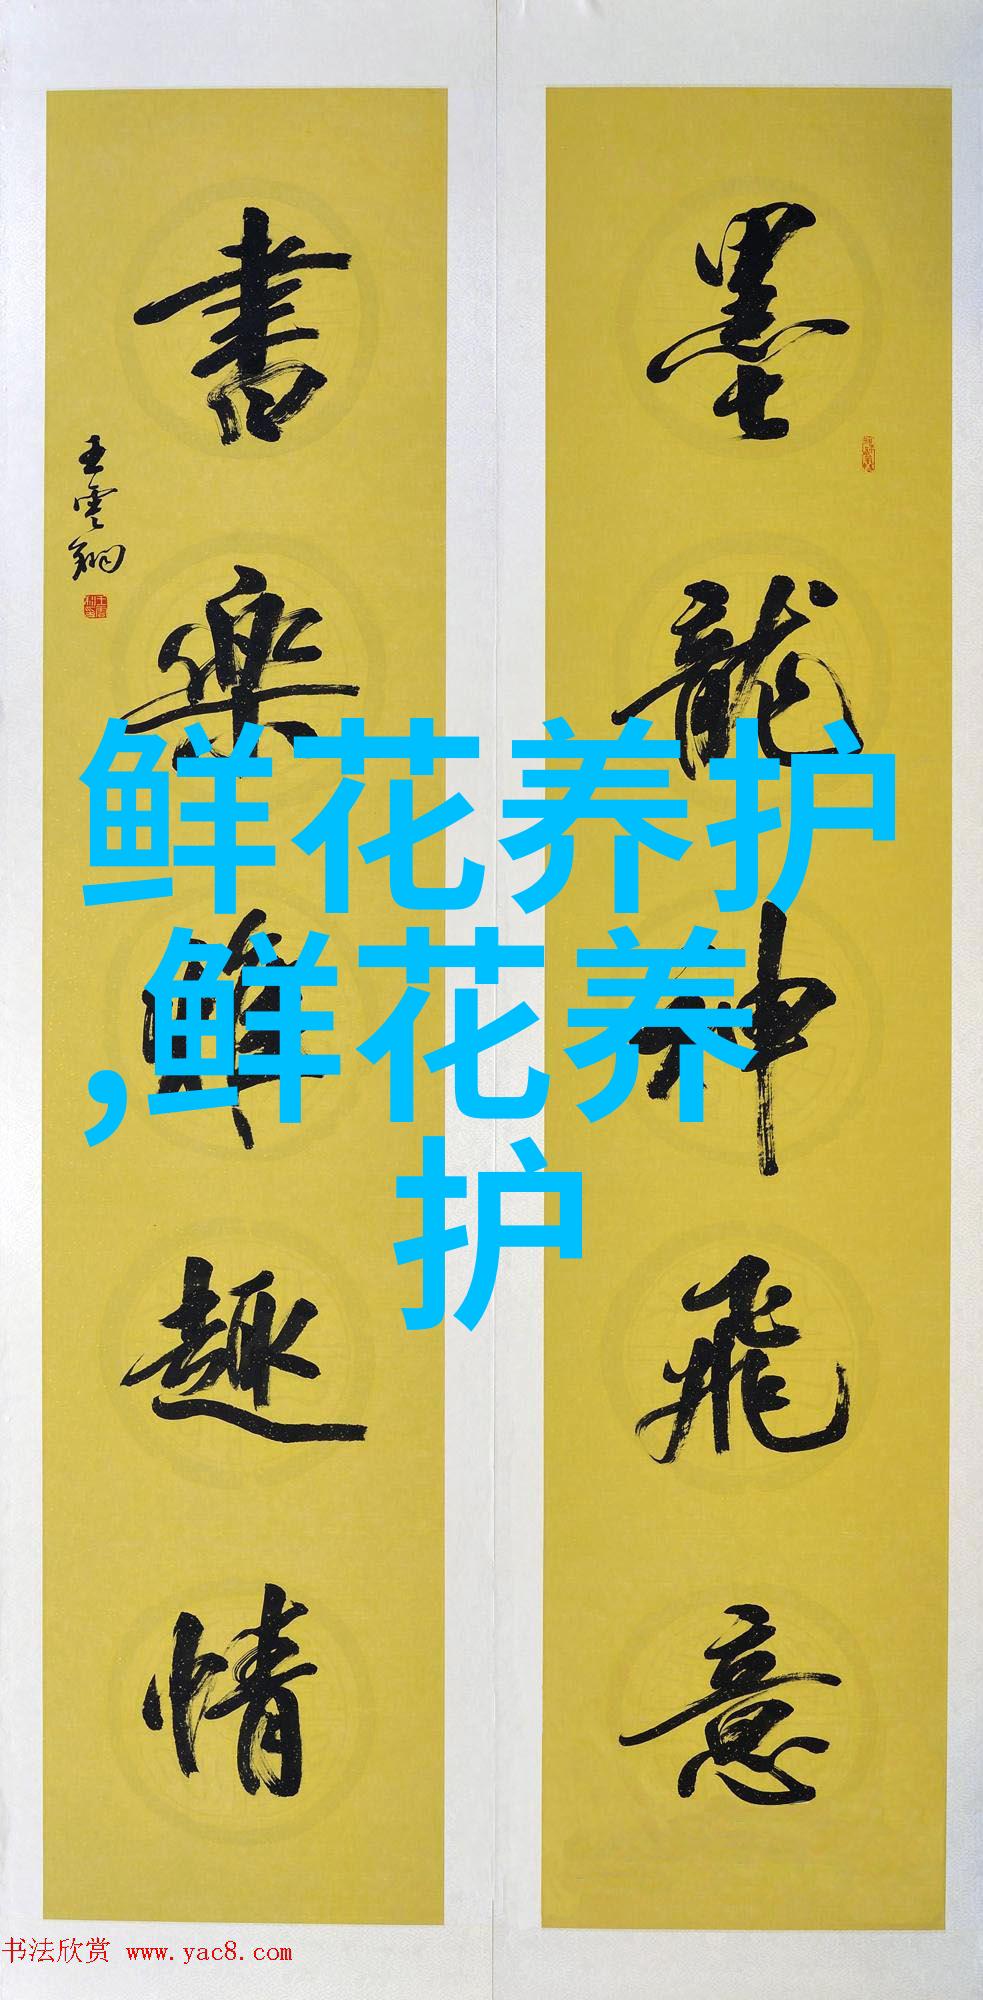 墨龍神飛意
書樂唯趣情
王雲翔
鲜花养护
,鲜花养
护
书法欣赏 www.yac8.com